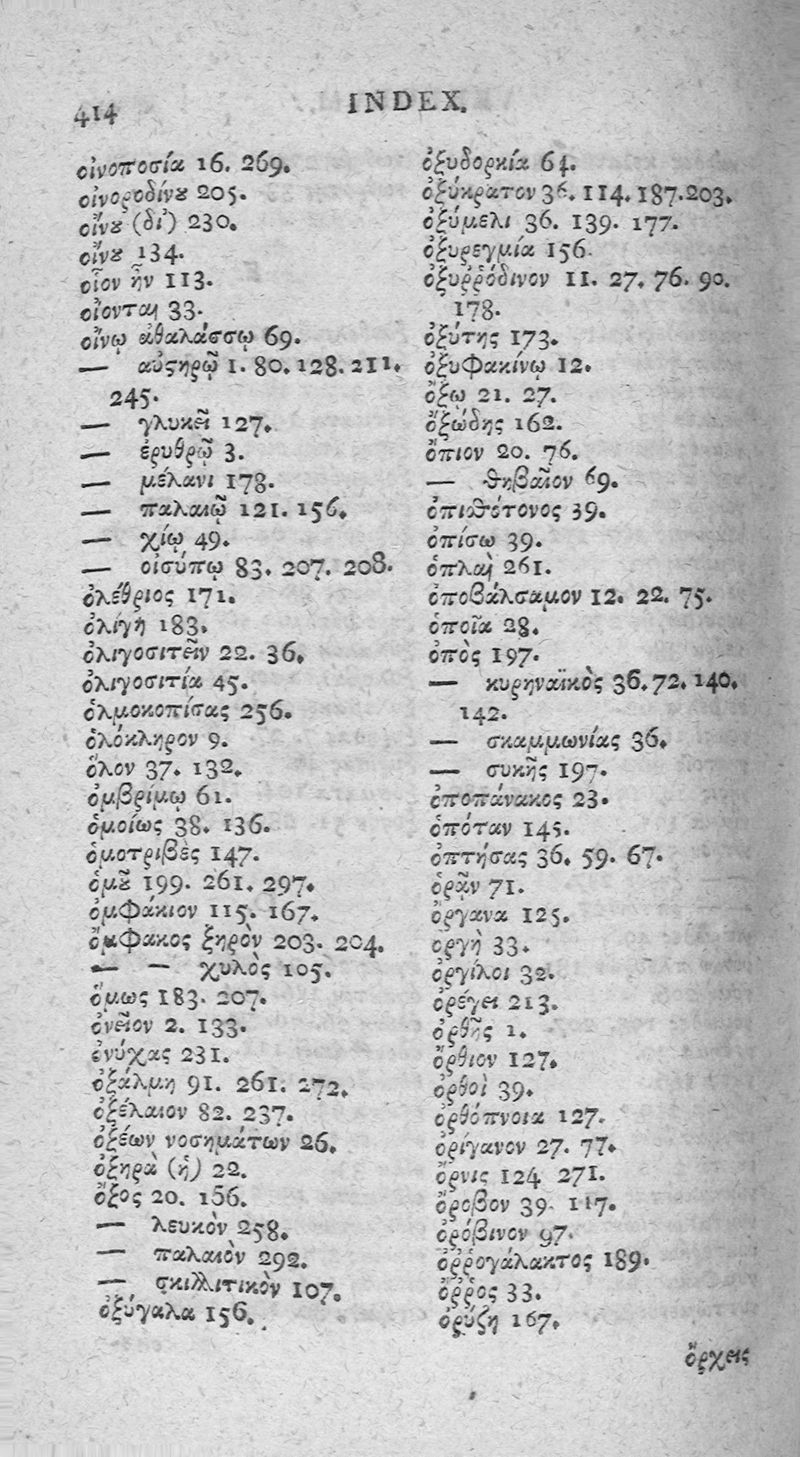 414
INDEX.
οἰνοποσία 16. 269.
οἰνοροδίνȣ 205.
οἴνȣ (δι') 230.
οἴνȣ 134.
οἷον ἦν 113.
οἴονται 33.
οἴνῳ ἀθαλάσσῳ 69.
— αὐϛηρῷ 1. 80. 128. 211.
245.
— γλυκεῖ 127.
— ἐρυθρῷ 3.
— μέλανι 178.
— παλαιῷ 121. 156.
— χίῳ 49.
— οἰσύπῳ 83. 207. 208.
ὀλέθριος 171.
ὀλίγη 183.
ὀλιγοσιτεῖν 22. 36.
ὀλιγοσιτία 45.
ὁλμοκοπίσας 256.
ὁλόκληρον 9.
ὅλον 37. 132.
ὀμβρίμῳ 61.
ὁμοίως 38. 136.
ὁμοτριβὲς 147.
ὁμȣ͂ 199. 261. 297.
ὀμφάκιον 115. 167.
ὄμφακος ξηρὸν 203. 204.
— — χυλὸς 105.
ὅμως 183. 207.
ὀνεῖον 2. 133.
ὀνύχας 231.
ὀξάλμη 91. 261. 272.
ὀξέλαιον 82. 237.
ὀξέων νοσημάτων 26.
ὀξηρὰ (ἡ) 22.
ὄξος 20. 156.
— λευκὸν 258.
— παλαιὸν 292.
— σκιλλιτικὸν 107.
ὀξύγαλα 156.
ὀξυδορκία 64.
ὀξύκρατον 36. 114. 187. 203.
ὀξύμελι 36. 139. 177.
ὀξυρεγμία 156.
ὀξυῤῥόδινον 11. 27. 76. 90.
178.
ὀξύτης 173.
ὀξυφακίνῳ 12.
ὄξῳ 21. 27.
ὄξώδης 162.
ὄπιον 20. 76.
— ϑηβαῖον 69.
ὀπισθότονος 39.
ὀπίσω 39.
ὁπλαὶ 261.
ὀποβάλσαμον 12. 22. 75.
ὁποῖα 28.
ὀπὸς 197.
— κυρηναϊκὸς 36. 72. 140.
142.
— σκαμμωνίας 36.
— συκῆς 197.
ὀποπάνακος 23.
ὁπόταν 145.
ὀπτήσας 36. 59. 67.
ὁρᾷν 71.
ὄργανα 125.
ὀργὴ 33.
ὀργίλοι 32.
ὀρέγει 213.
ὀρθῆς 1.
ὄρθιον 127.
ὀρθοὶ 39.
ὀρθόπνοια 127.
ὀρίγανον 27. 77.
ὄρνις 124 271.
ὄροβον 39. 117.
ὀρόβινον 97.
ὀῤῥογάλακτος 189.
ὀῤῥος 33.
ὀρύζη 167.
ὄρχεις